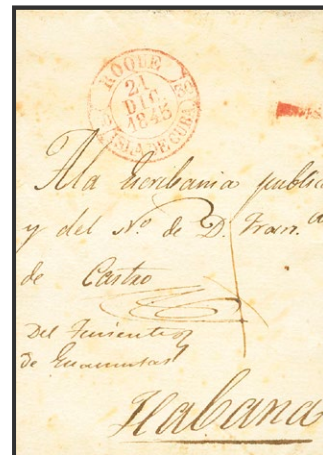 ROQUE
21
DIC
1845
ISLA DE CUBA
A la Escribania publica
y del Nº. de D. Fran.co
de Castro
Del Teniente
de Guamutas
Habana